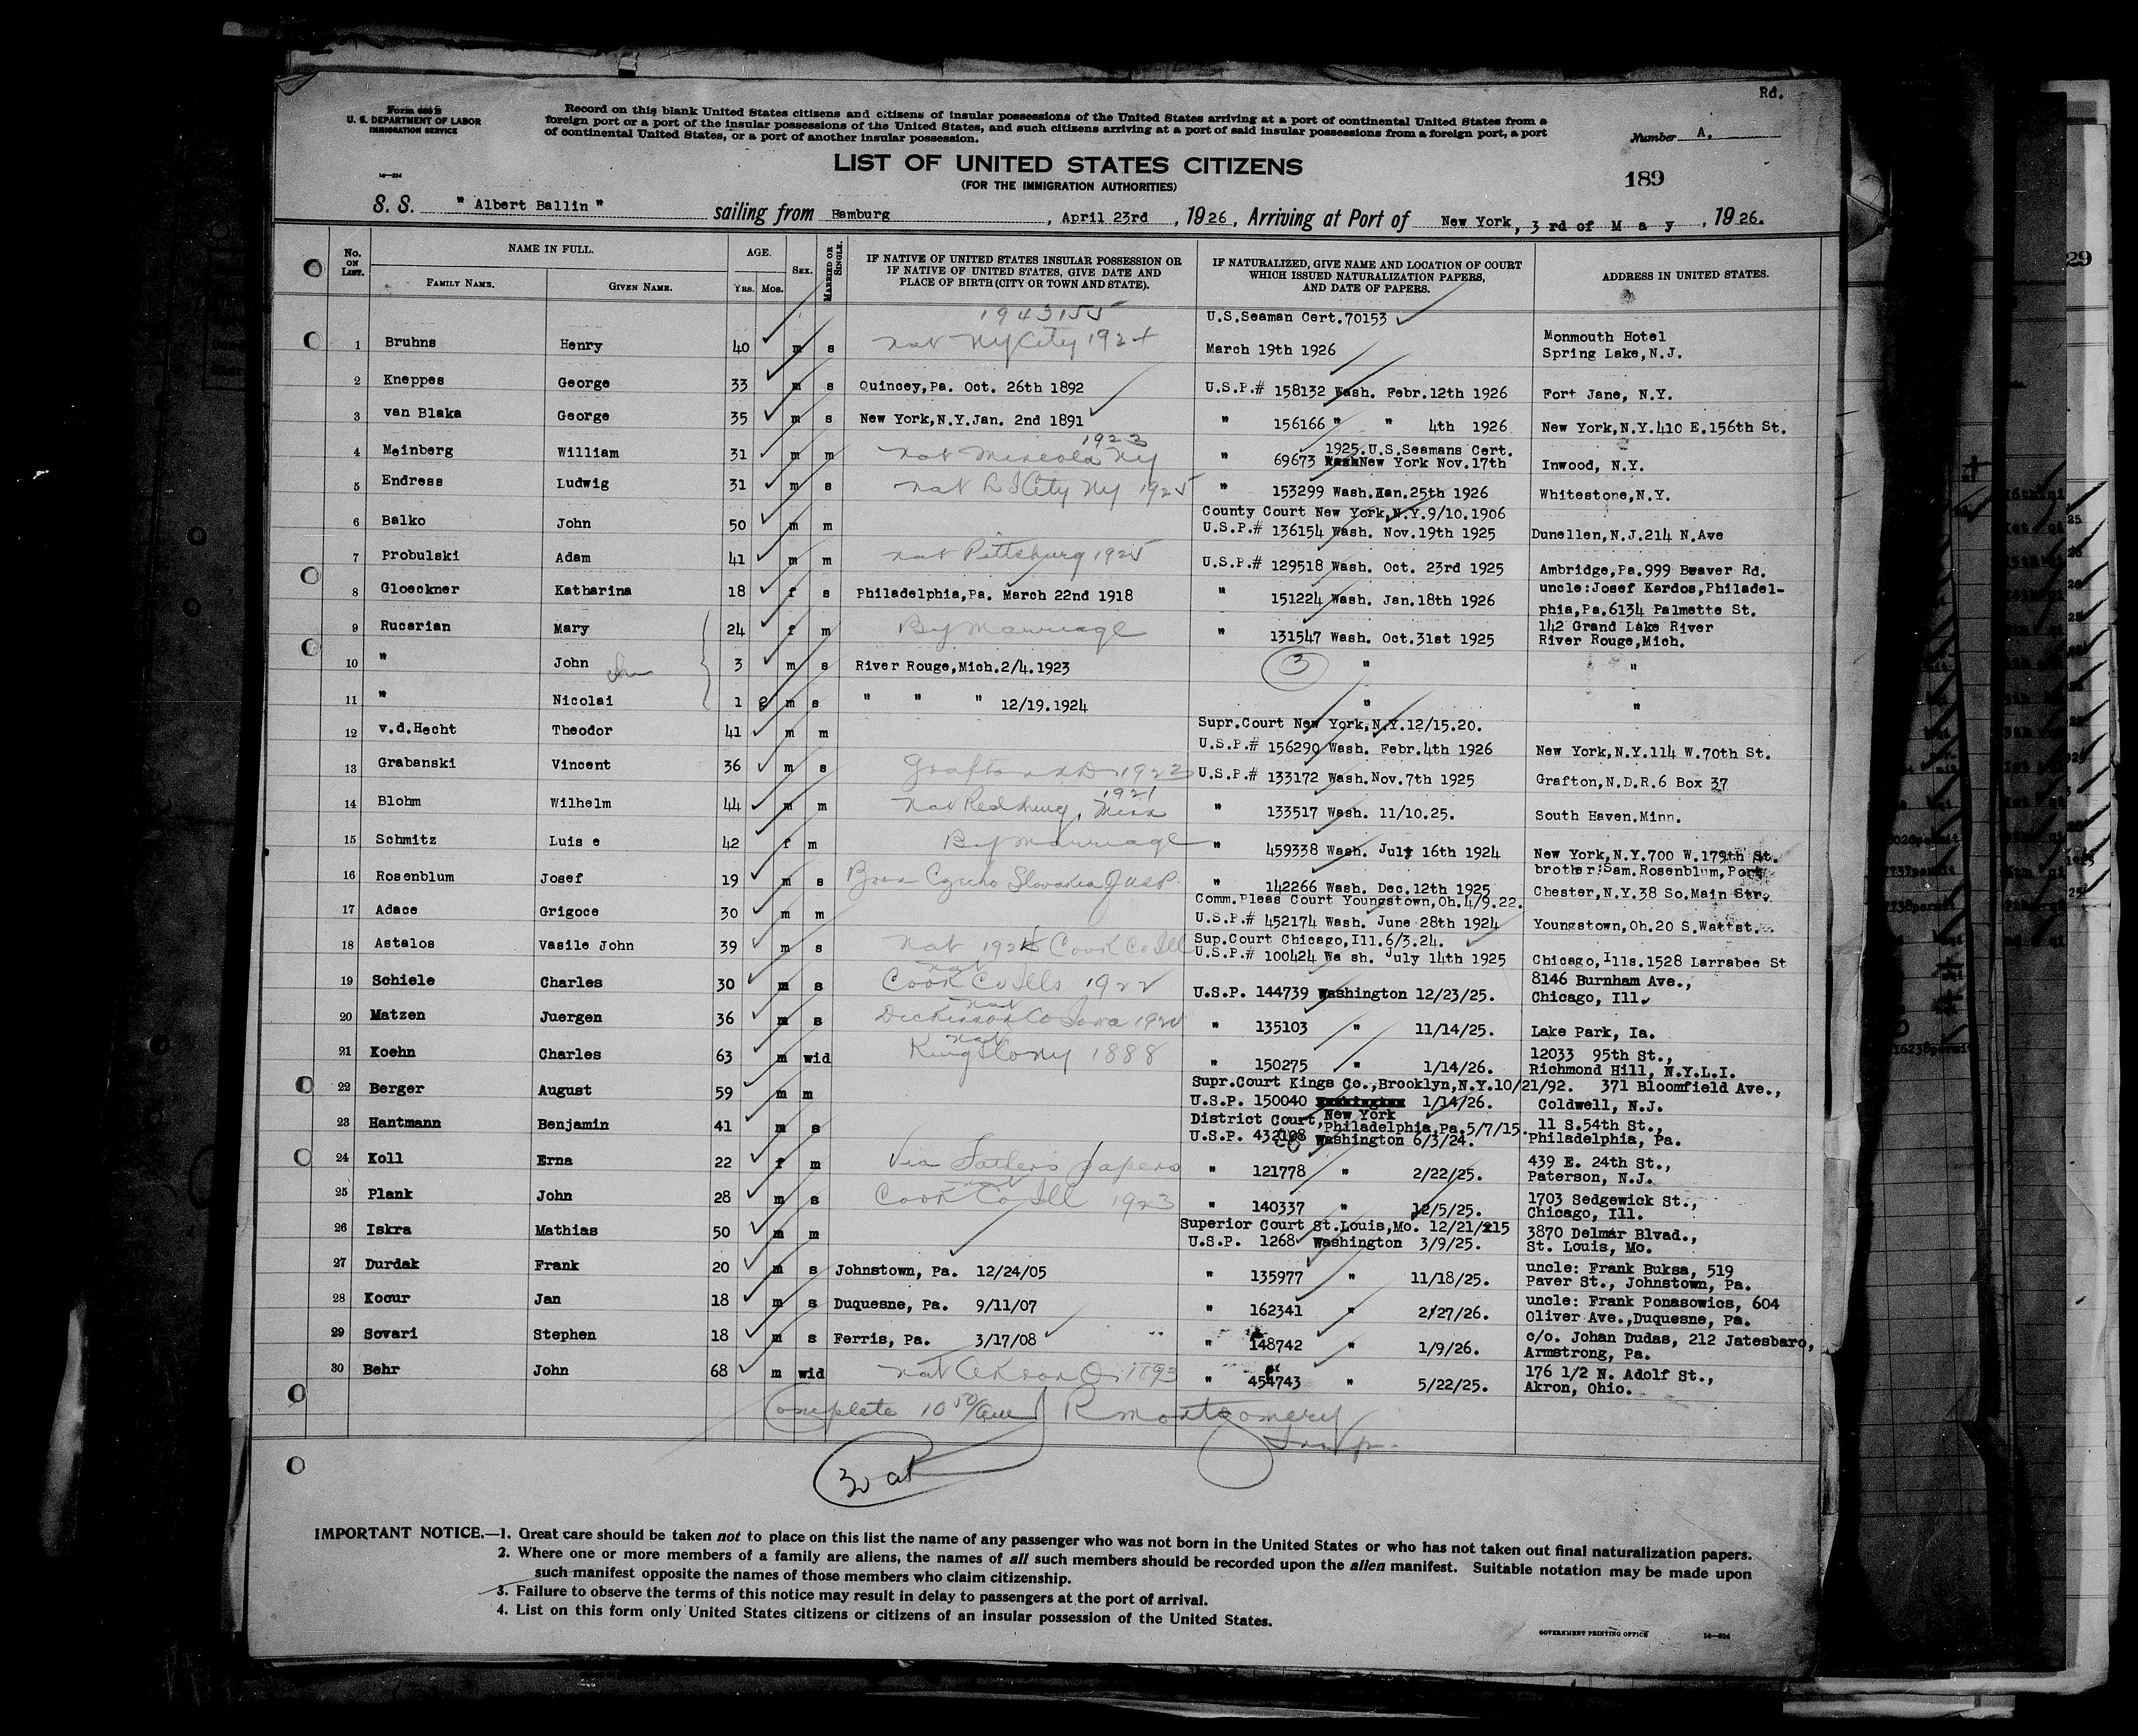 Rd.
Form 630 B
U. S. DEPARTMENT OF LABOR
IMMIGRATION SERVICE
Record on this blank United States citizens and citizens of insular possessions of the United States arriving at a port of continental United States from a
foreign port or a port of the insular possessions of the United States, and such citizens arriving at a port of said insular possessions from a foreign port, a port
of continental United States, or a port of another insular possession.
Number A.
LIST OF UNITED STATES CITIZENS
(FOR THE IMMIGRATION AUTHORITIES)
189
S. S. "Albert Ballin" sailing from Hamburg, April 23rd, 1926, Arriving at Port of New York, 3 rd of M a y, 1926.
No. ON LIST. NAME IN FULL. AGE. SEX. MARRIED OR SINGLE. IF NATIVE OF UNITED STATES INSULAR POSSESSION OR IF NATIVE OF UNITED STATES, GIVE DATE AND PLACE OF BIRTH (CITY OR TOWN AND STATE). IF NATURALIZED, GIVE NAME AND LOCATION OF COURT WHICH ISSUED NATURALIZATION PAPERS, AND DATE OF PAPERS. ADDRESS IN UNITED STATES.
FAMILY NAME. GIVEN NAME. YRS. MOS.
1943155 U.S.Seaman Cert.70153
1 Bruhns Henry 40 m s nat NyCity 1924 March 19th 1926 Monmouth Hotel
Spring Lake,N.J.
2 Kneppes George 33 m s Quincey,Pa. Oct. 26th 1892 U.S.P.# 158132 Wash. Febr.12th 1926 Fort Jane, N.Y.
3 van Blaka George 35 m s New York,N.Y.Jan. 2nd 1891 " 156166 " " 4th 1926 New York,N.Y.410 E.156th St.
1923 1925.U.S.Seamans Cert.
4 Meinberg William 31 m m nat Mineola Ny " 69673 New York Nov.17th Inwood, N.Y.
5 Endress Ludwig 31 m s nat L I City Ny 1925 " 153299 Wash.Han.25th 1926 Whitestone,N.Y.
County Court New York,N.Y.9/10.1906
6 Balko John 50 m m U.S.P.# 136154 Wash. Nov.19th 1925 Dunellen,N.J.214 N.Ave
7 Probulski Adam 41 m m nat Pittsburg 1925 U.S.P.# 129518 Wash. Oct. 23rd 1925 Ambridge,Pa.999 Beaver Rd.
8 Gloeckner Katharina 18 f s Philadelphia,Pa. March 22nd 1918 " 151224 Wash. Jan.18th 1926 uncle:Josef Kardos,Philadel-
phia,Pa.6134 Palmette St.
9 Rucarian Mary 24 f m By Marriage " 131547 Wash. Oct.31st 1925 142 Grand Lake River
River Rouge,Mich.
10 " John 3 m s River Rouge,Mich.2/4.1923 3 " "
11 " Nicolai 1 m s " " " 12/19.1924 " "
Supr.Court New York,N.Y.12/15.20.
12 v.d.Hecht Theodor 41 m m U.S.P.# 156290 Wash. Febr.4th 1926 New York,N.Y.114 W.70th St.
13 Grabanski Vincent 36 m s Grafton ND 1922 U.S.P.# 133172 Wash.Nov.7th 1925 Grafton,N.D.R.6 Box 37
1921
14 Blohm Wilhelm 44 m m nat Minn " 133517 Wash. 11/10.25. South Haven.Minn.
15 Schmitz Luis e 42 f m By Marriage " 459338 Wash. July 16th 1924 New York,N.Y.700 W.179th St.
16 Rosenblum Josef 19 m s Born Czecho Slovakia " 142266 Wash. Dec.12th 1925 brother:Sam.Rosenblum,Port
Chester,N.Y.38 So.Main Str.
Comm.Pleas Court Youngstown,Oh.4/9.22.
17 Adace Grigoce 30 m m U.S.P.# 452174 Wash. June 28th 1924 Youngstown,Oh.20 S.Wattst.
Sup.Court Chicago,Ill.6/3.24.
18 Astalos Vasile John 39 m s nat 1924 Cook Co Ill U.S.P.# 100424 Wa sh. July 14th 1925 Chicago,Ills.1528 Larrabee St
nat
19 Schiele Charles 30 m s Cook Co Ills 1922 U.S.P. 144739 Washington 12/23/25. 8146 Burnham Ave.,
Chicago, Ill.
nat
20 Matzen Juergen 36 m s Dickinson Co Iowa 192 " 135103 " 11/14/25. Lake Park, Ia.
nat
21 Koehn Charles 63 m wid Kings Co Ny 1888 " 150275 " 1/14/26. 12033 95th St.,
Richmond Hill, N.Y.L.I.
Supr.Court Kings Co.,Brooklyn,N.Y.10/21/92.
22 Berger August 59 m m U.S.P. 150040 1/14/26. 371 Bloomfield Ave.,
New York Coldwell, N.J.
District Court,Philadelphia,Pa.5/7/15.
23 Hantmann Benjamin 41 m s U.S.P. 432108 Washington 6/3/24. 11 S.54th St.,
Philadelphia, Pa.
24 Koll Erna 22 f m Via Father's papers " 121778 " 2/22/25. 439 E. 24th St.,
Paterson, N.J.
nat
25 Plank John 28 m s Cook Co Ill 1923 " 140337 " 12/5/25. 1703 Sedgewick St.,
Chicago, Ill.
Superior Court St.Louis,Mo. 12/21/215
26 Iskra Mathias 50 m m U.S.P. 1268 Washington 3/9/25. 3870 Delmar Blvad.,
St. Louis, Mo.
27 Durdak Frank 20 m s Johnstown, Pa. 12/24/05 " 135977 " 11/18/25. uncle: Frank Buksa, 519
Paver St., Johnstown, Pa.
28 Kocur Jan 18 m s Duquesne, Pa. 9/11/07 " 162341 " 2/27/26. uncle: Frank Ponasowics, 604
Oliver Ave.,Duquesne, Pa.
29 Sovari Stephen 18 m s Ferris, Pa. 3/17/08 " 148742 " 1/9/26. c/o. Johan Dudas, 212 Jatesbaro,
Armstrong, Pa.
30 Behr John 68 m wid nat Akron O. 1893 " 454743 " 5/22/25. 176 1/2 N. Adolf St.,
Akron, Ohio.
Complete 10 50/am R Montgomery
Insp.
IMPORTANT NOTICE.—1. Great care should be taken not to place on this list the name of any passenger who was not born in the United States or who has not taken out final naturalization papers.
2. Where one or more members of a family are aliens, the names of all such members should be recorded upon the alien manifest. Suitable notation may be made upon
such manifest opposite the names of those members who claim citizenship.
3. Failure to observe the terms of this notice may result in delay to passengers at the port of arrival.
4. List on this form only United States citizens or citizens of an insular possession of the United States.
GOVERNMENT PRINTING OFFICE